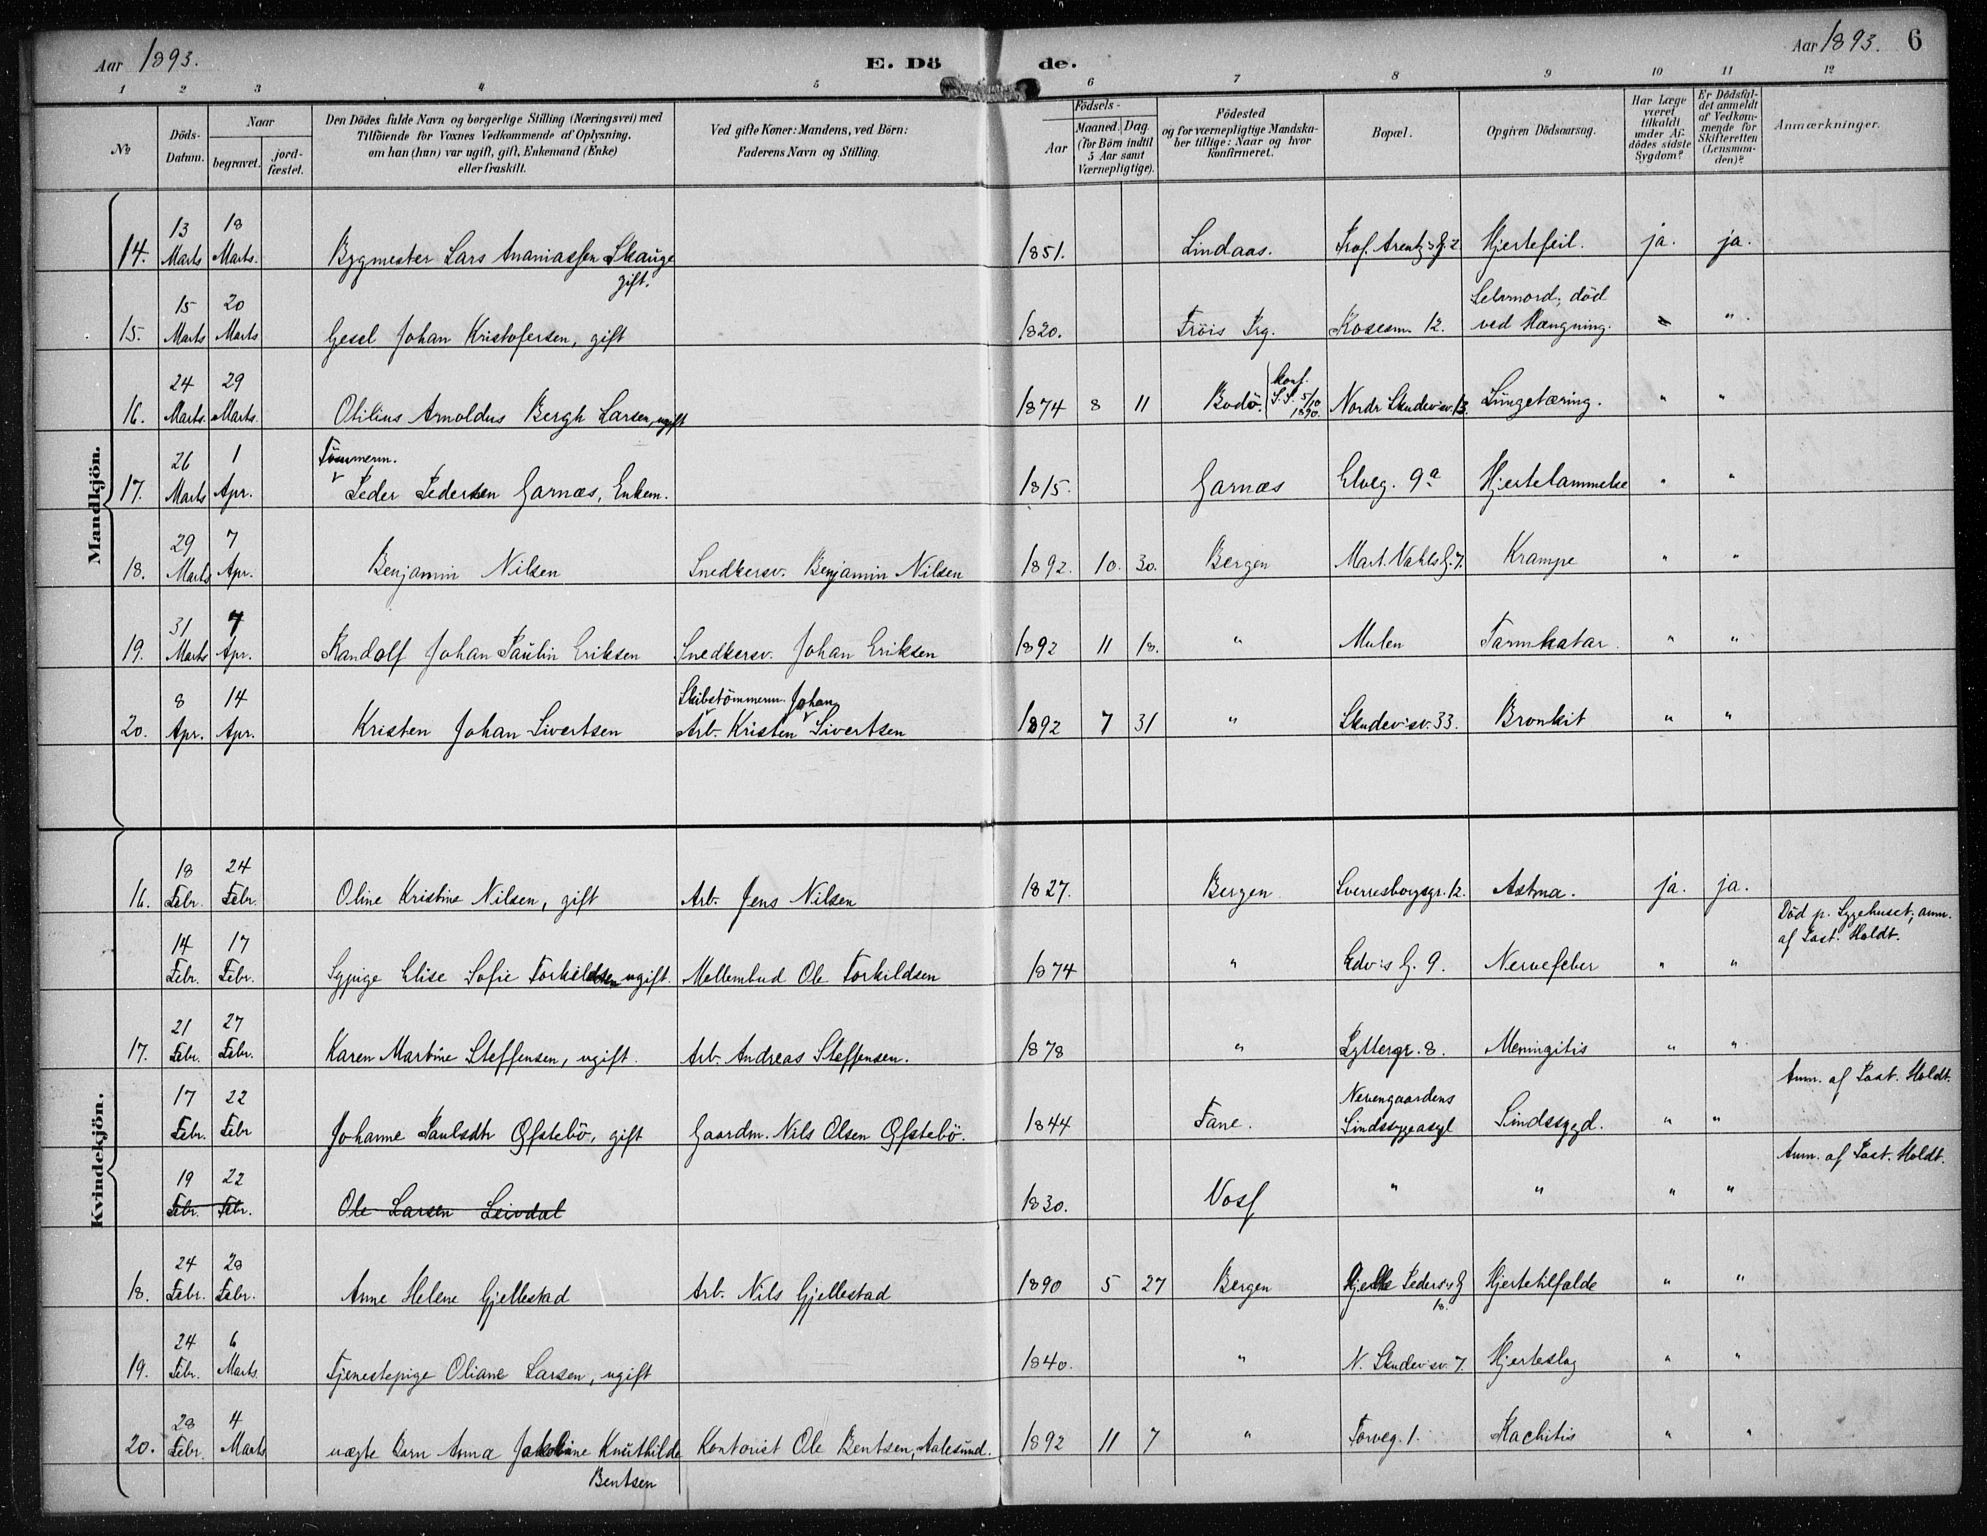 Aar 1893. E. Dö de. Aar 1893. 6
1 2 3 4 5 6 7 8 9 10 11 12
No
Döds-Datum.
Naar
begravet.
jord-fæstet.
Den Dödes fulde Navn og borgerlige Stilling (Næringsvei) med
Tilföiende for Voxnes Vedkommende af Oplysning,
om han (hun) var ugift, gift, Enkemand (Enke)
eller fraskilt.
Ved gifte Koner: Mandens, ved Börn:
Faderens Navn og Stilling.
Födsels-
Aar
Maaned. Dag.
(for Börn indtil
5 Aar samt
Værnepligtige).
Födested
og for værnepligtige Mandska-
ber tillige: Naar og hvor
konfirmeret.
Bopæl.
Opgiven Dödsaarsag.
Har Læge
været
tilkaldt
under Af-
dödes sidste
Sygdom?
Er Dödsfal-
det anmeldt
af Vedkom-
mende for
Skifteretten
(Lensman-
den)?
Anmærkninger.
Mandkjön.
14. 13 Marts 18 Marts. Bygmester Lars Ananiassen Skauge gift. 1851. Lindaas. Prof. Arentz's G. 2 Hjertefeil. ja. ja.
15. 15 Marts 20 Marts Gesel Johan Kristofersen, gift 1820. Tröis Prg. Kosesm. 12. Selvmord; död ved Hængning. "
16. 24 Marts. 29 Marts. Otilius Arnoldus Bergh Larsen, ugift 1874 8 11 Bodö. konf. S.P. 5/10 1890. Nordr. Skudev'sv. 13. Lungetæring. " "
17. 26 Marts 1 Apr. Tömmerm. Peder Pedersen Garnæs, Enkem. 1815. Garnæs Elveg. 9a Hjertelammelse " "
18. 29 Marts 7 Apr. Benjamin Nilsen Snedkersv. Benjamin Nilsen 1892. 10. 30. Bergen Mart. Vahls G. 7. Krampe " "
19. 31 Marts 7 Apr. Randolf Johan Paulin Eriksen Snedkersv. Johan Eriksen 1892 11 18. " Mulen Tarmkatar. " "
20. 8 Apr. 14 Apr. Kristen Johan Sivertsen Skibstömmerm. Johan Arb. Kristen Sivertsen 1892 7 31 " Skudev'sv. 33. Bronkit " "
Kvindekjön.
16. 18 Febr. 24 Febr. Oline Kristine Nilsen, gift Arb. Jens Nilsen 1827. Bergen Sverresborgsgr. 12. Astma. ja. ja.
14 Febr. 17 Febr. Sypige Elise Sofie Torkildsen ugift. Mellembud Ole Torkildsen 1874 " Edv's G. 9. Nervefeber " " Död p. Sygehuset; anm. af Past. Holdt.
17. 21 Febr. 27 Febr. Karen Martine Steffensen, ugift. Arb. Andreas Steffensen. 1878 " Lyttergr. 8. Meningitis " "
17 Febr. 22 Febr Johanne Paulsdtr Ofstebö, gift Gaardm. Nils Olsen Ofstebö. 1844 Fane. Nevengaardens Sindssygeasyl Sindssygd. " " Anm. af Past. Holdt.
19 Febr. 22 Febr. Ole Larsen Leivdal 1830. Voss " " " " Anm. af Past. Holdt.
18. 24 Febr. 28 Febr. Anne Helene Gjellestad Arb. Nils Gjellestad 1890 5 27 Bergen Peders's G 18. Hjertetilfælde " "
19. 24 Febr. 6 Marts. Tjenestepige Oliane Larsen, ugift 1840. " N. Skudev'sv. 7. Hjerteslag " "
20. 28 Febr. 4 Marts uægte Barn Anna Jakobine Knuthilde Bentsen Kontorist Ole Bentsen, Aalesund. 1892 11 7 " Torveg. 1. Rachitis " "